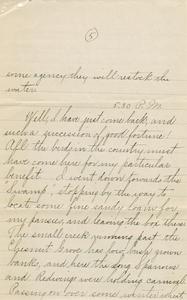 5
some agency they will restock the
water.
5.30 P.M.
Well, I have just come back, and
such a succession of good fortune!
All the birds in the country must
have come here for my particular
benefit. I went down towards the
"Swamp" stopping by the way to
locate some fine sandy loam for
my pansies, and leaving the box there.
The small creek running past the
Chesnut Grove has low, bush grown
banks, and here the Song Sparrows
and Redwings were holding carnival.
Passing on over some